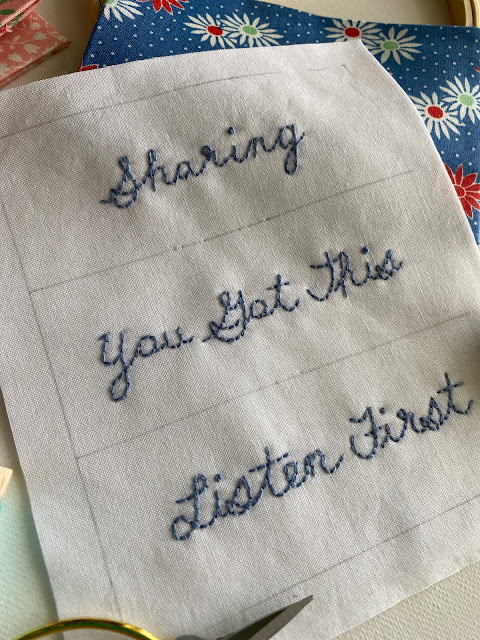 Sharing
You Got This
Listen First